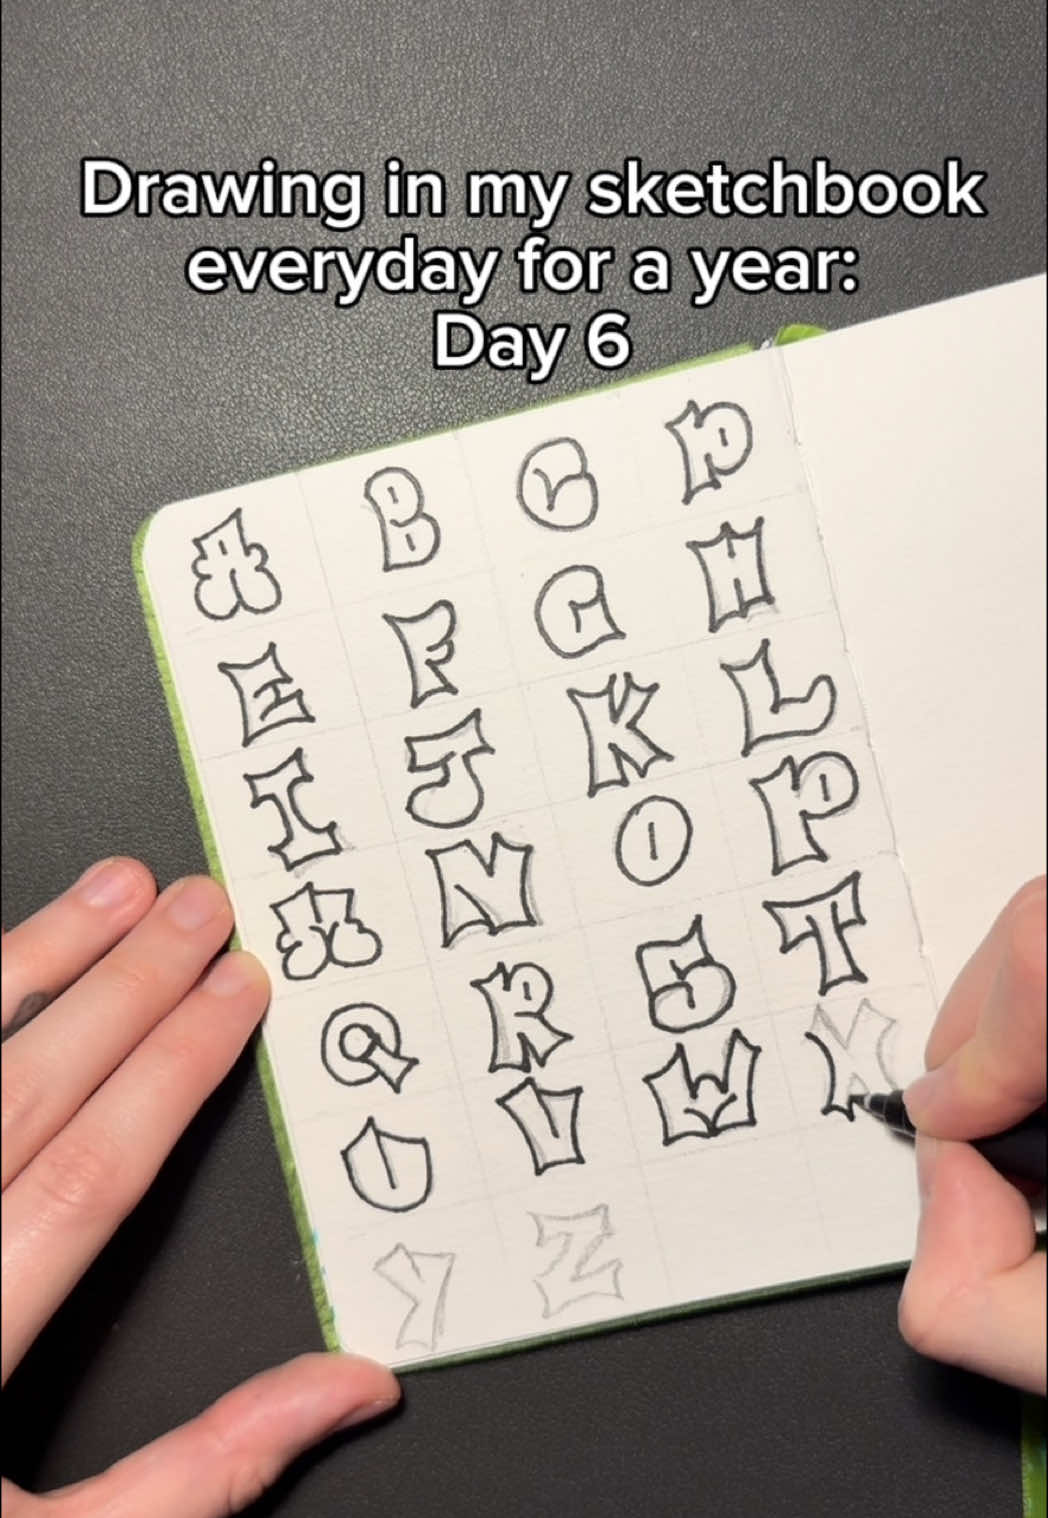 Drawing in my sketchbook
everyday for a year:
Day 6
A B C D
E F G H
I J K L
M N O P
Q R S T
U V W X
Y Z